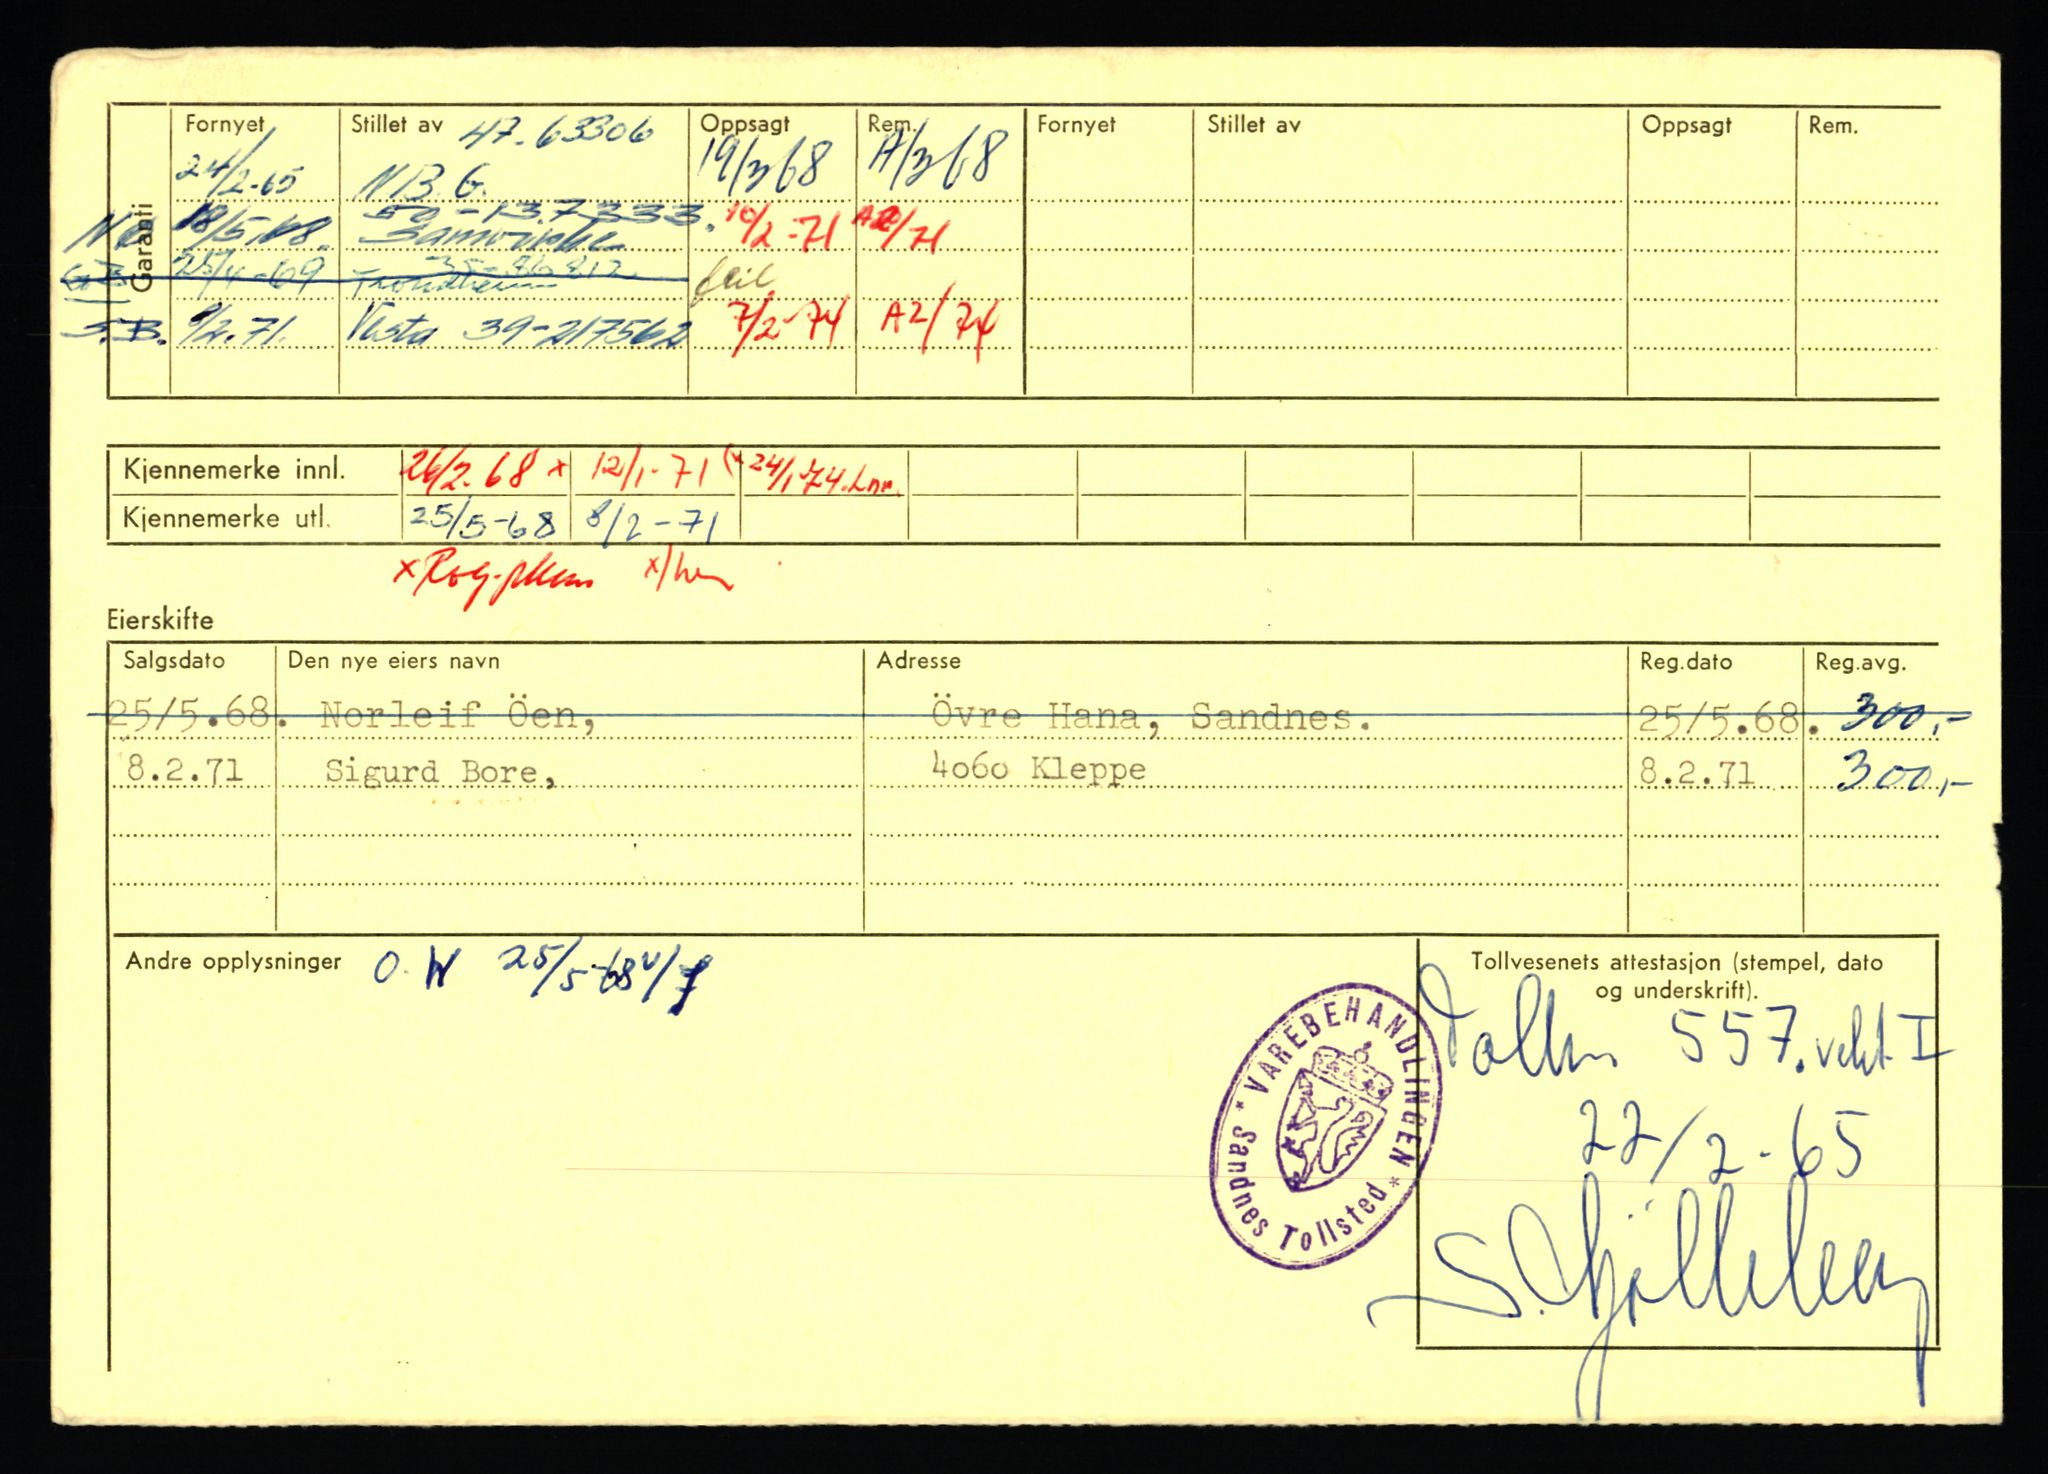 Garanti
Fornyet Stillet av 47.63306 Oppsagt Rem. Fornyet Stillet av Oppsagt Rem.
24/2-65 N.B.G. 19/3 68 A/3 68
18/5-68. 50-137333. 10/2-71
25/4-69 Trondheim 35-86812 feil
S.B. 9/2.71. Vesta 39-217562 7/2-74 A2/74
Kjennemerke innl. 26/2.68 x 12/1-71 (x 24/1-74. Lnr.
Kjennemerke utl. 25/5-68 8/2-71
Eierskifte
Salgsdato Den nye eiers navn Adresse Reg.dato Reg.avg.
25/5.68. Norleif Öen, Övre Hana, Sandnes. 25/5.68. 300,-
8.2.71 Sigurd Bore, 4060 Kleppe 8.2.71 300,-
Andre opplysninger O.W 25/5-68
Tollvesenets attestasjon (stempel, dato
og underskrift).
* VAREBEHANDLINGEN *
Sandnes Tollsted
557. vekt I
22/2-65